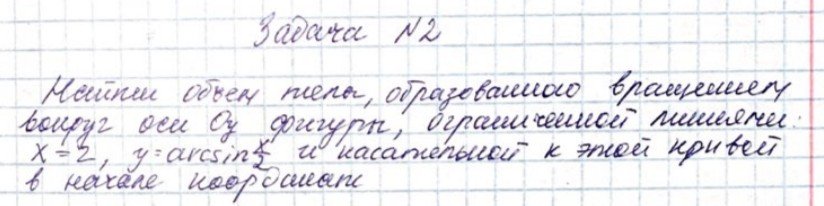 Задача N2
Найти объем тела, образованного вращением
вокруг оси Oy фигуры, ограниченной линиями:
x=2, y=arcsin x/2 и касательной к этой кривой
в начале координат